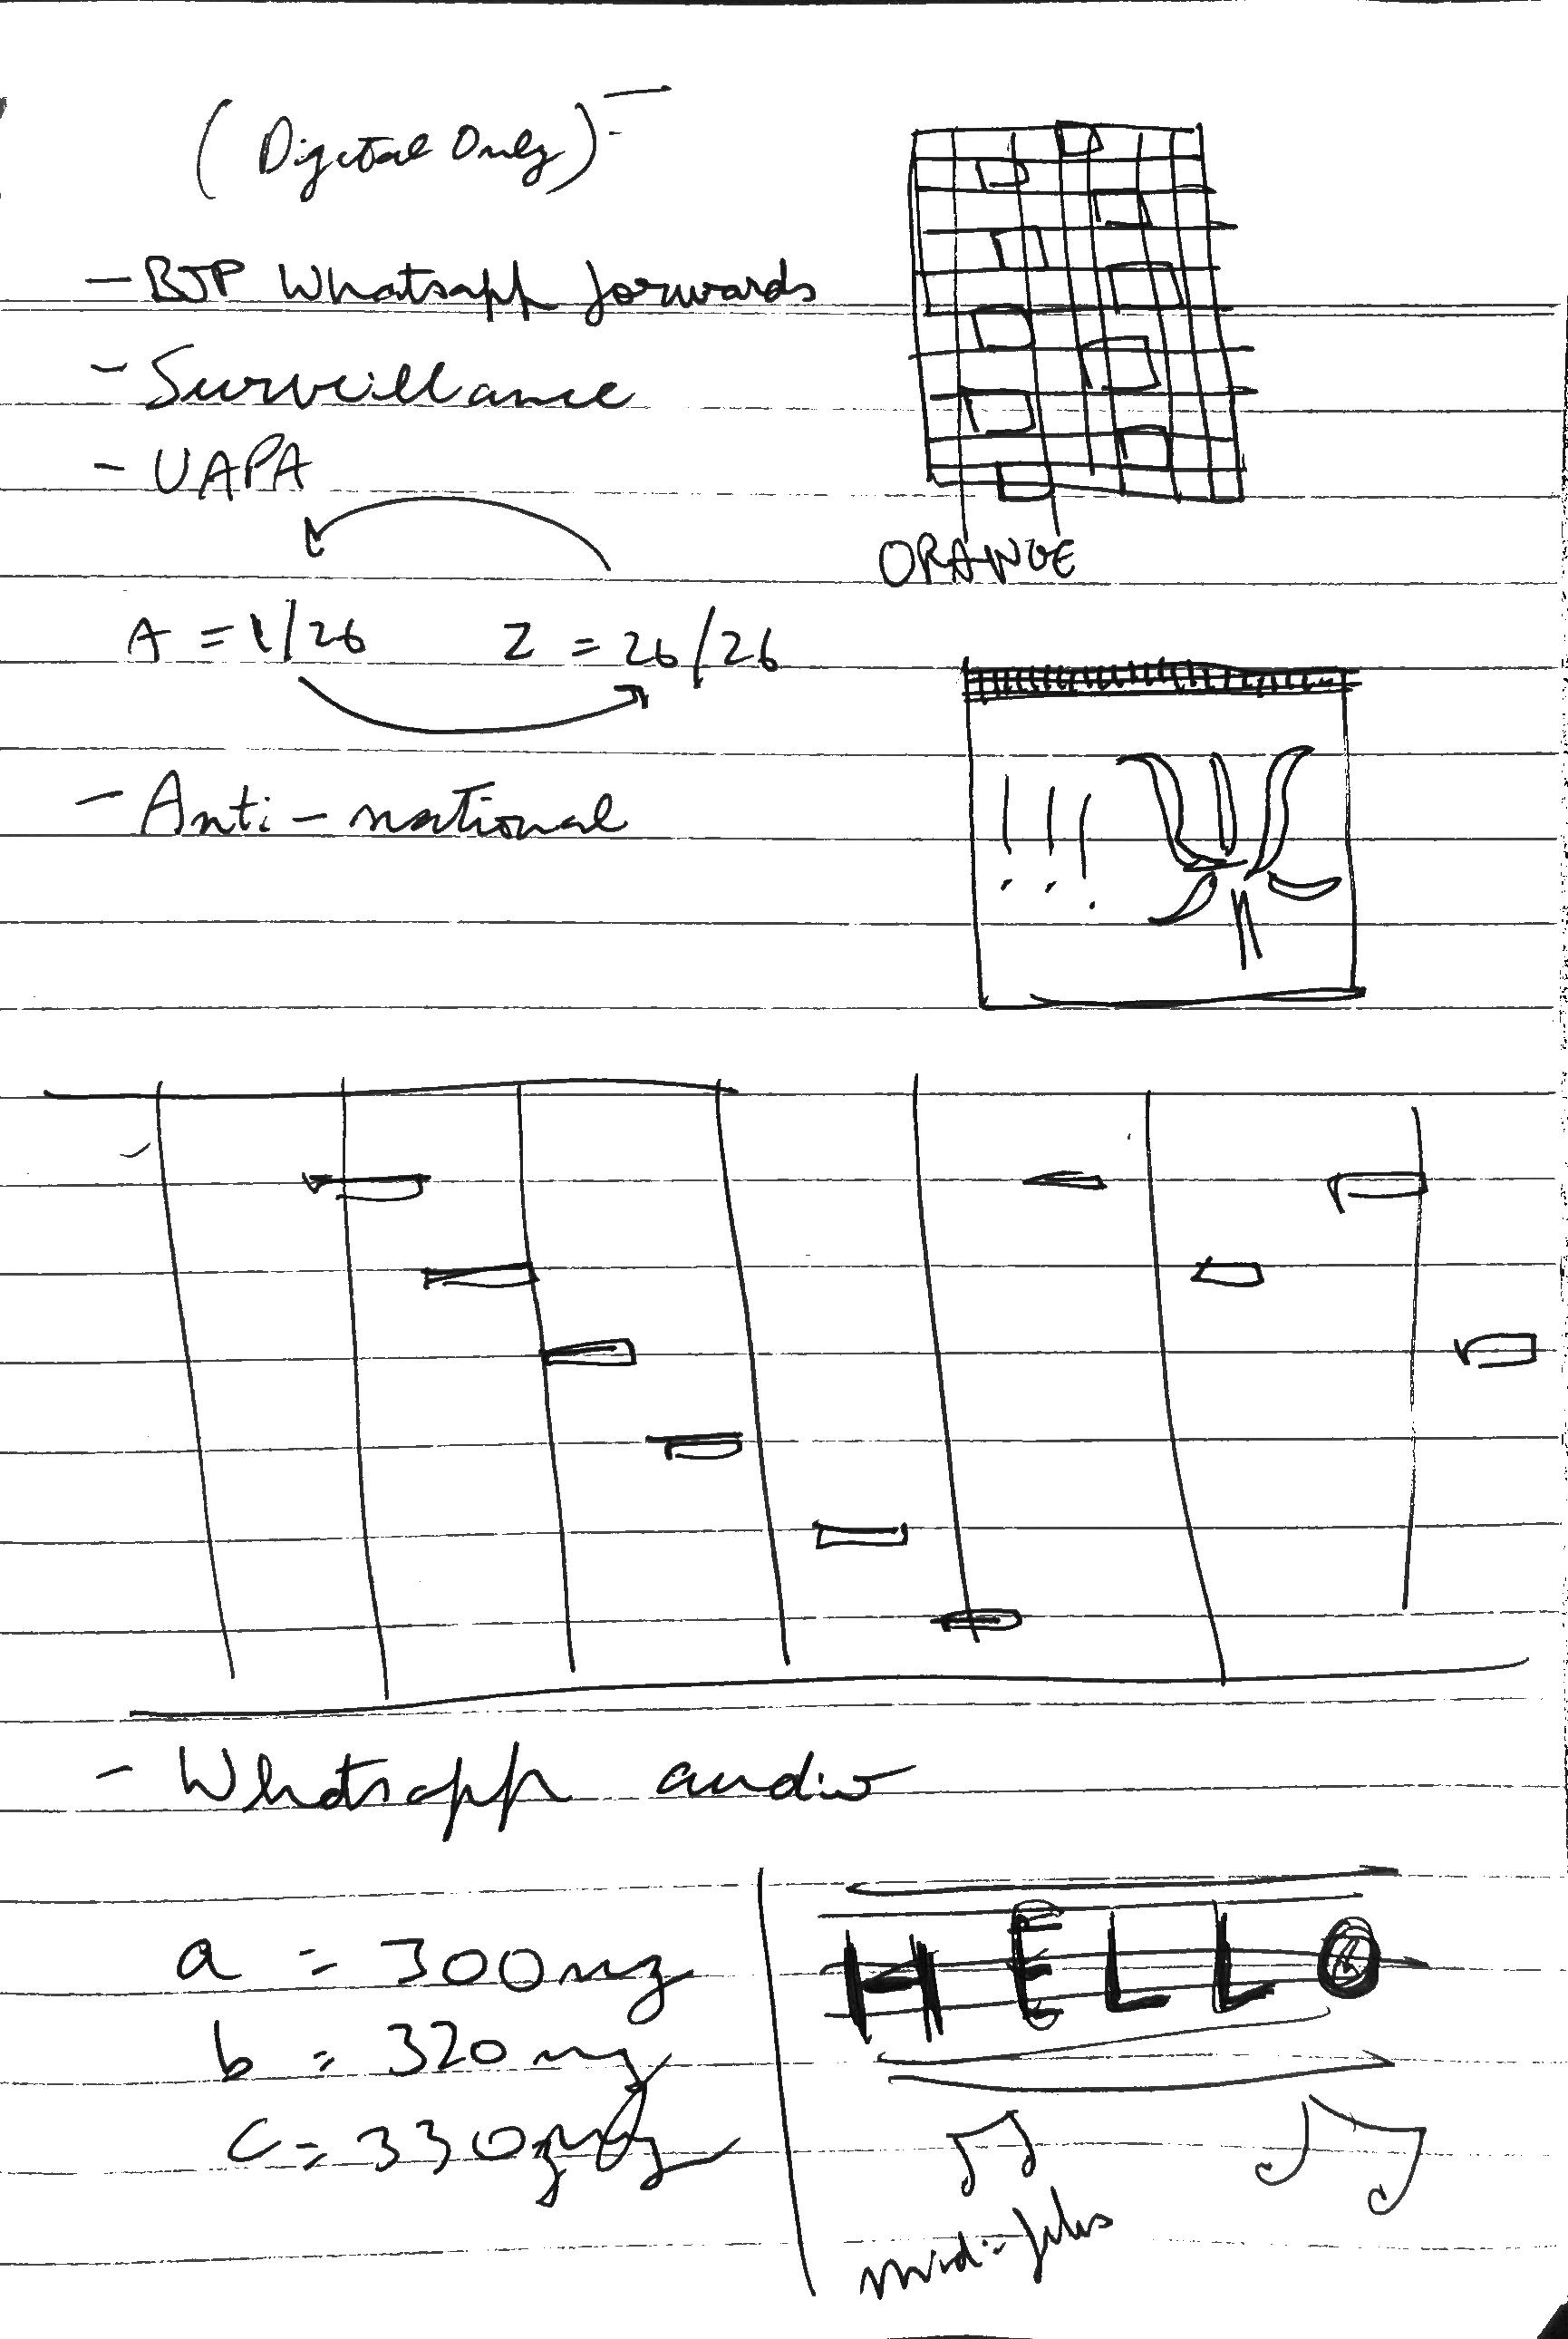 (Digital Only)
- BJP Whatsapp forwards
- Surveillance
- UAPA
ORANGE
A = 1/26 Z = 26/26
- Anti-national
! ! !
- Whatsapp audio
a = 300
b = 320
c = 330
HELLO
midi files